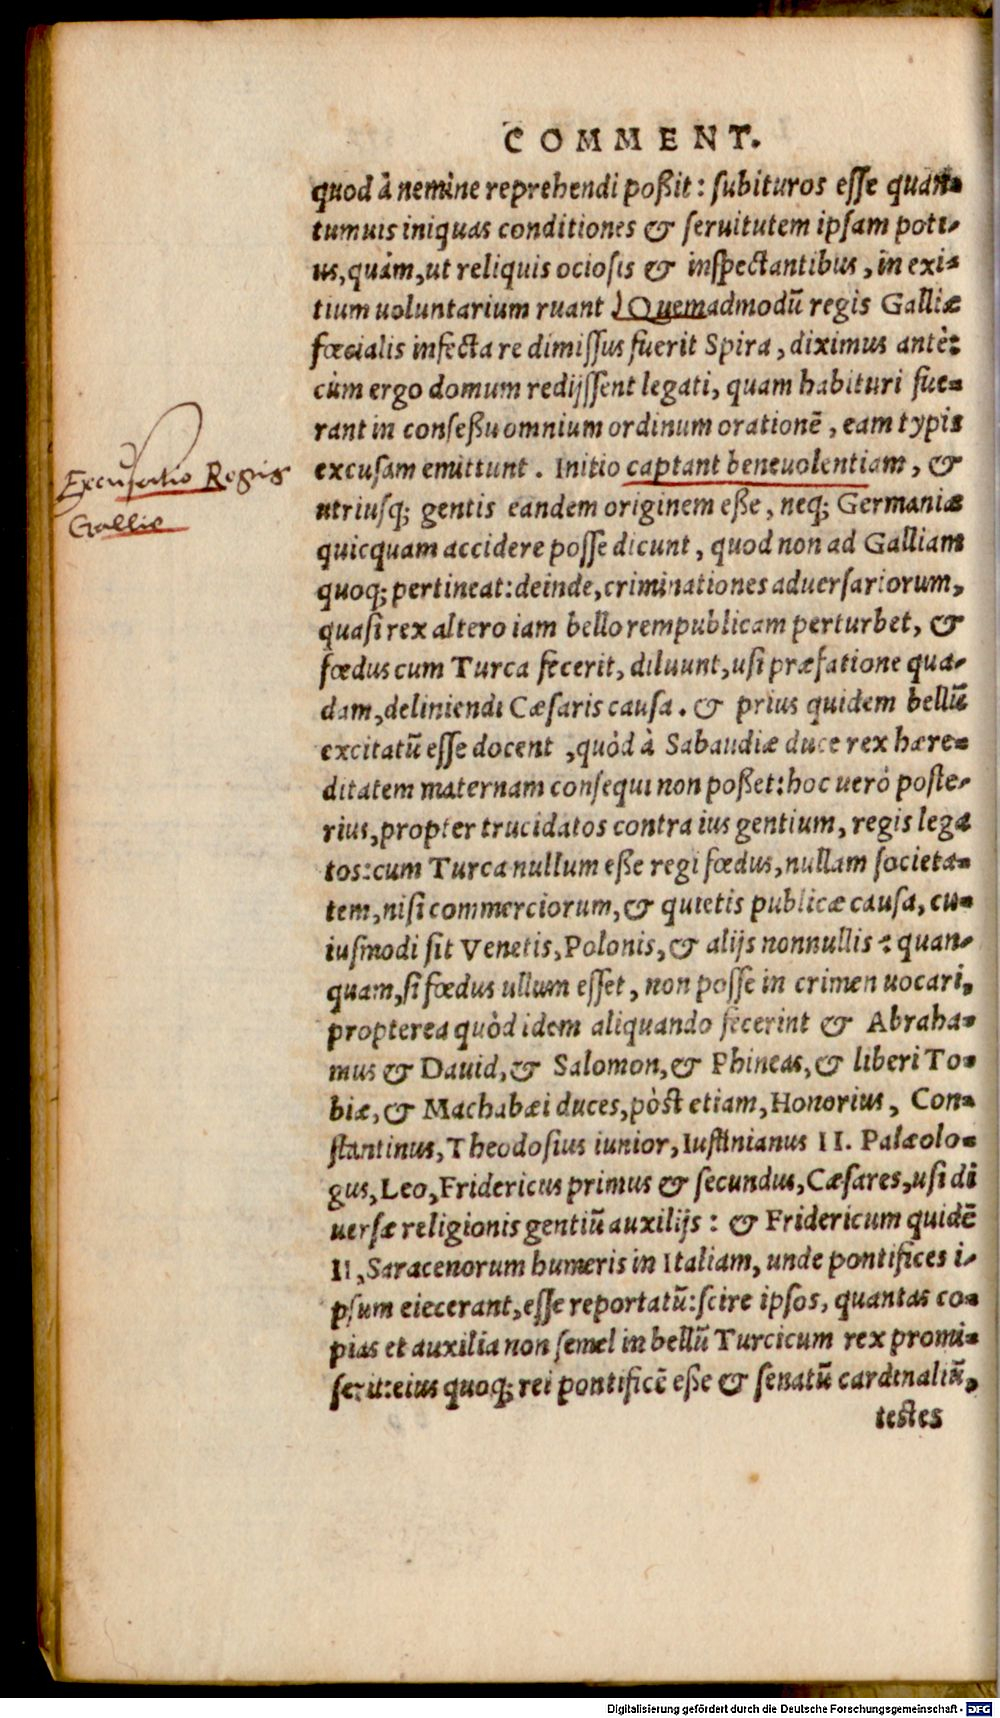 COMMENT.
quod à nemine reprehendi poßit: subituros esse quan=
tumuis iniquas conditiones & seruitutem ipsam poti-
us, quàm, ut reliquis ociosis & inspectantibus, in exi=
tium uoluntarium ruant. Quemadmodū regis Galliæ
fœcialis infecta re dimissus fuerit Spira, diximus antè:
cùm ergo domum redijssent legati, quam habituri fue=
rant in conseßu omnium ordinum orationē, eam typis
excusam emittunt. Initio captant beneuolentiam, &
Excusatio Regis
Gallie
utriusq; gentis eandem originem eße, neq; Germaniæ
quicquam accidere posse dicunt, quod non ad Galliam
quoq; pertineat: deinde, criminationes aduersariorum,
quasi rex altero iam bello rempublicam perturbet, &
fœdus cum Turca fecerit, diluunt, usi præfatione qua-
dam, deliniendi Cæsaris causa. & prius quidem bellū
excitatū esse docent, quòd à Sabaudiæ duce rex hære=
ditatem maternam consequi non poßet: hoc uerò poste-
rius, propter trucidatos contra ius gentium, regis lega
tos: cum Turca nullum eße regi fœdus, nullam societa=
tem, nisi commerciorum, & quietis publicæ causa, cu=
iusmodi sit Venetis, Polonis, & alijs nonnullis: quan-
quam, si fœdus ullum esset, non posse in crimen uocari,
propterea quòd idem aliquando fecerint & Abraha=
mus & Dauid, & Salomon, & Phineas, & liberi To=
biæ, & Machabæi duces, pòst etiam, Honorius, Con=
stantinus, Theodosius iunior, Iustinianus II. Palæolo=
gus, Leo, Fridericus primus & secundus, Cæsares, usi di
uersæ religionis gentiū auxilijs: & Fridericum quidē
II, Saracenorum humeris in Italiam, unde pontifices i-
psum eiecerant, esse reportatū: scire ipsos, quantas co=
pias et auxilia non semel in bellū Turcicum rex promi=
serit: eius quoq; rei pontificē eße & senatū cardinaliū,
testes
Digitalisierung gefördert durch die Deutsche Forschungsgemeinschaft - DFG